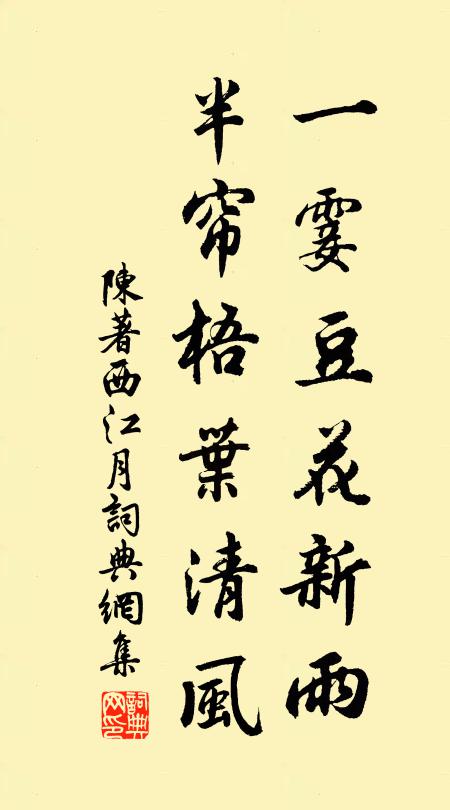 一霎豆花新雨
半帘梧葉清風
陳著西江月詞典網集
詞典網印